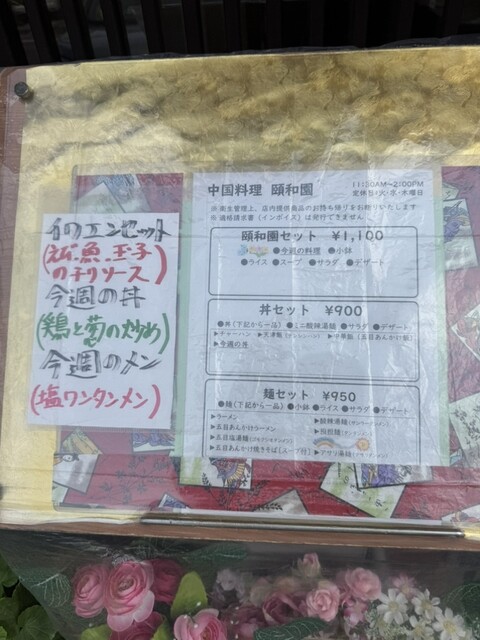 イワエンセット
(えび.魚.玉子
のチリソース)
今週の丼
(鶏と筍の炒め)
今週のメン
(塩ワンタンメン)
中国料理 頤和園
11:30AM~2:00PM
定休日・火・水・木曜日
※衛生管理上、店内提供商品のお持ち帰りをお断りいたします
※適格請求書(インボイス)は発行できません
頤和園セット ¥1,100
●今週の料理 ●小鉢
●ライス ●スープ ●サラダ ●デザート
丼セット ¥900
●丼(下記から一品) ●ミニ酸辣湯麺 ●サラダ ●デザート
▶チャーハン ▶天津飯(テンシンハン) ▶中華飯(五目あんかけ飯)
▶今週の丼
麺セット ¥950
●麺(下記から一品) ●小鉢 ●ライス ●サラダ ●デザート
▶ラーメン ▶酸辣湯麺(サンラータンメン)
▶五目あんかけラーメン ▶担担麺(タンタンメン)
▶五目塩湯麺(ゴモクシオタンメン)
▶五目あんかけ焼きそば(スープ付) ▶アサリ湯麺